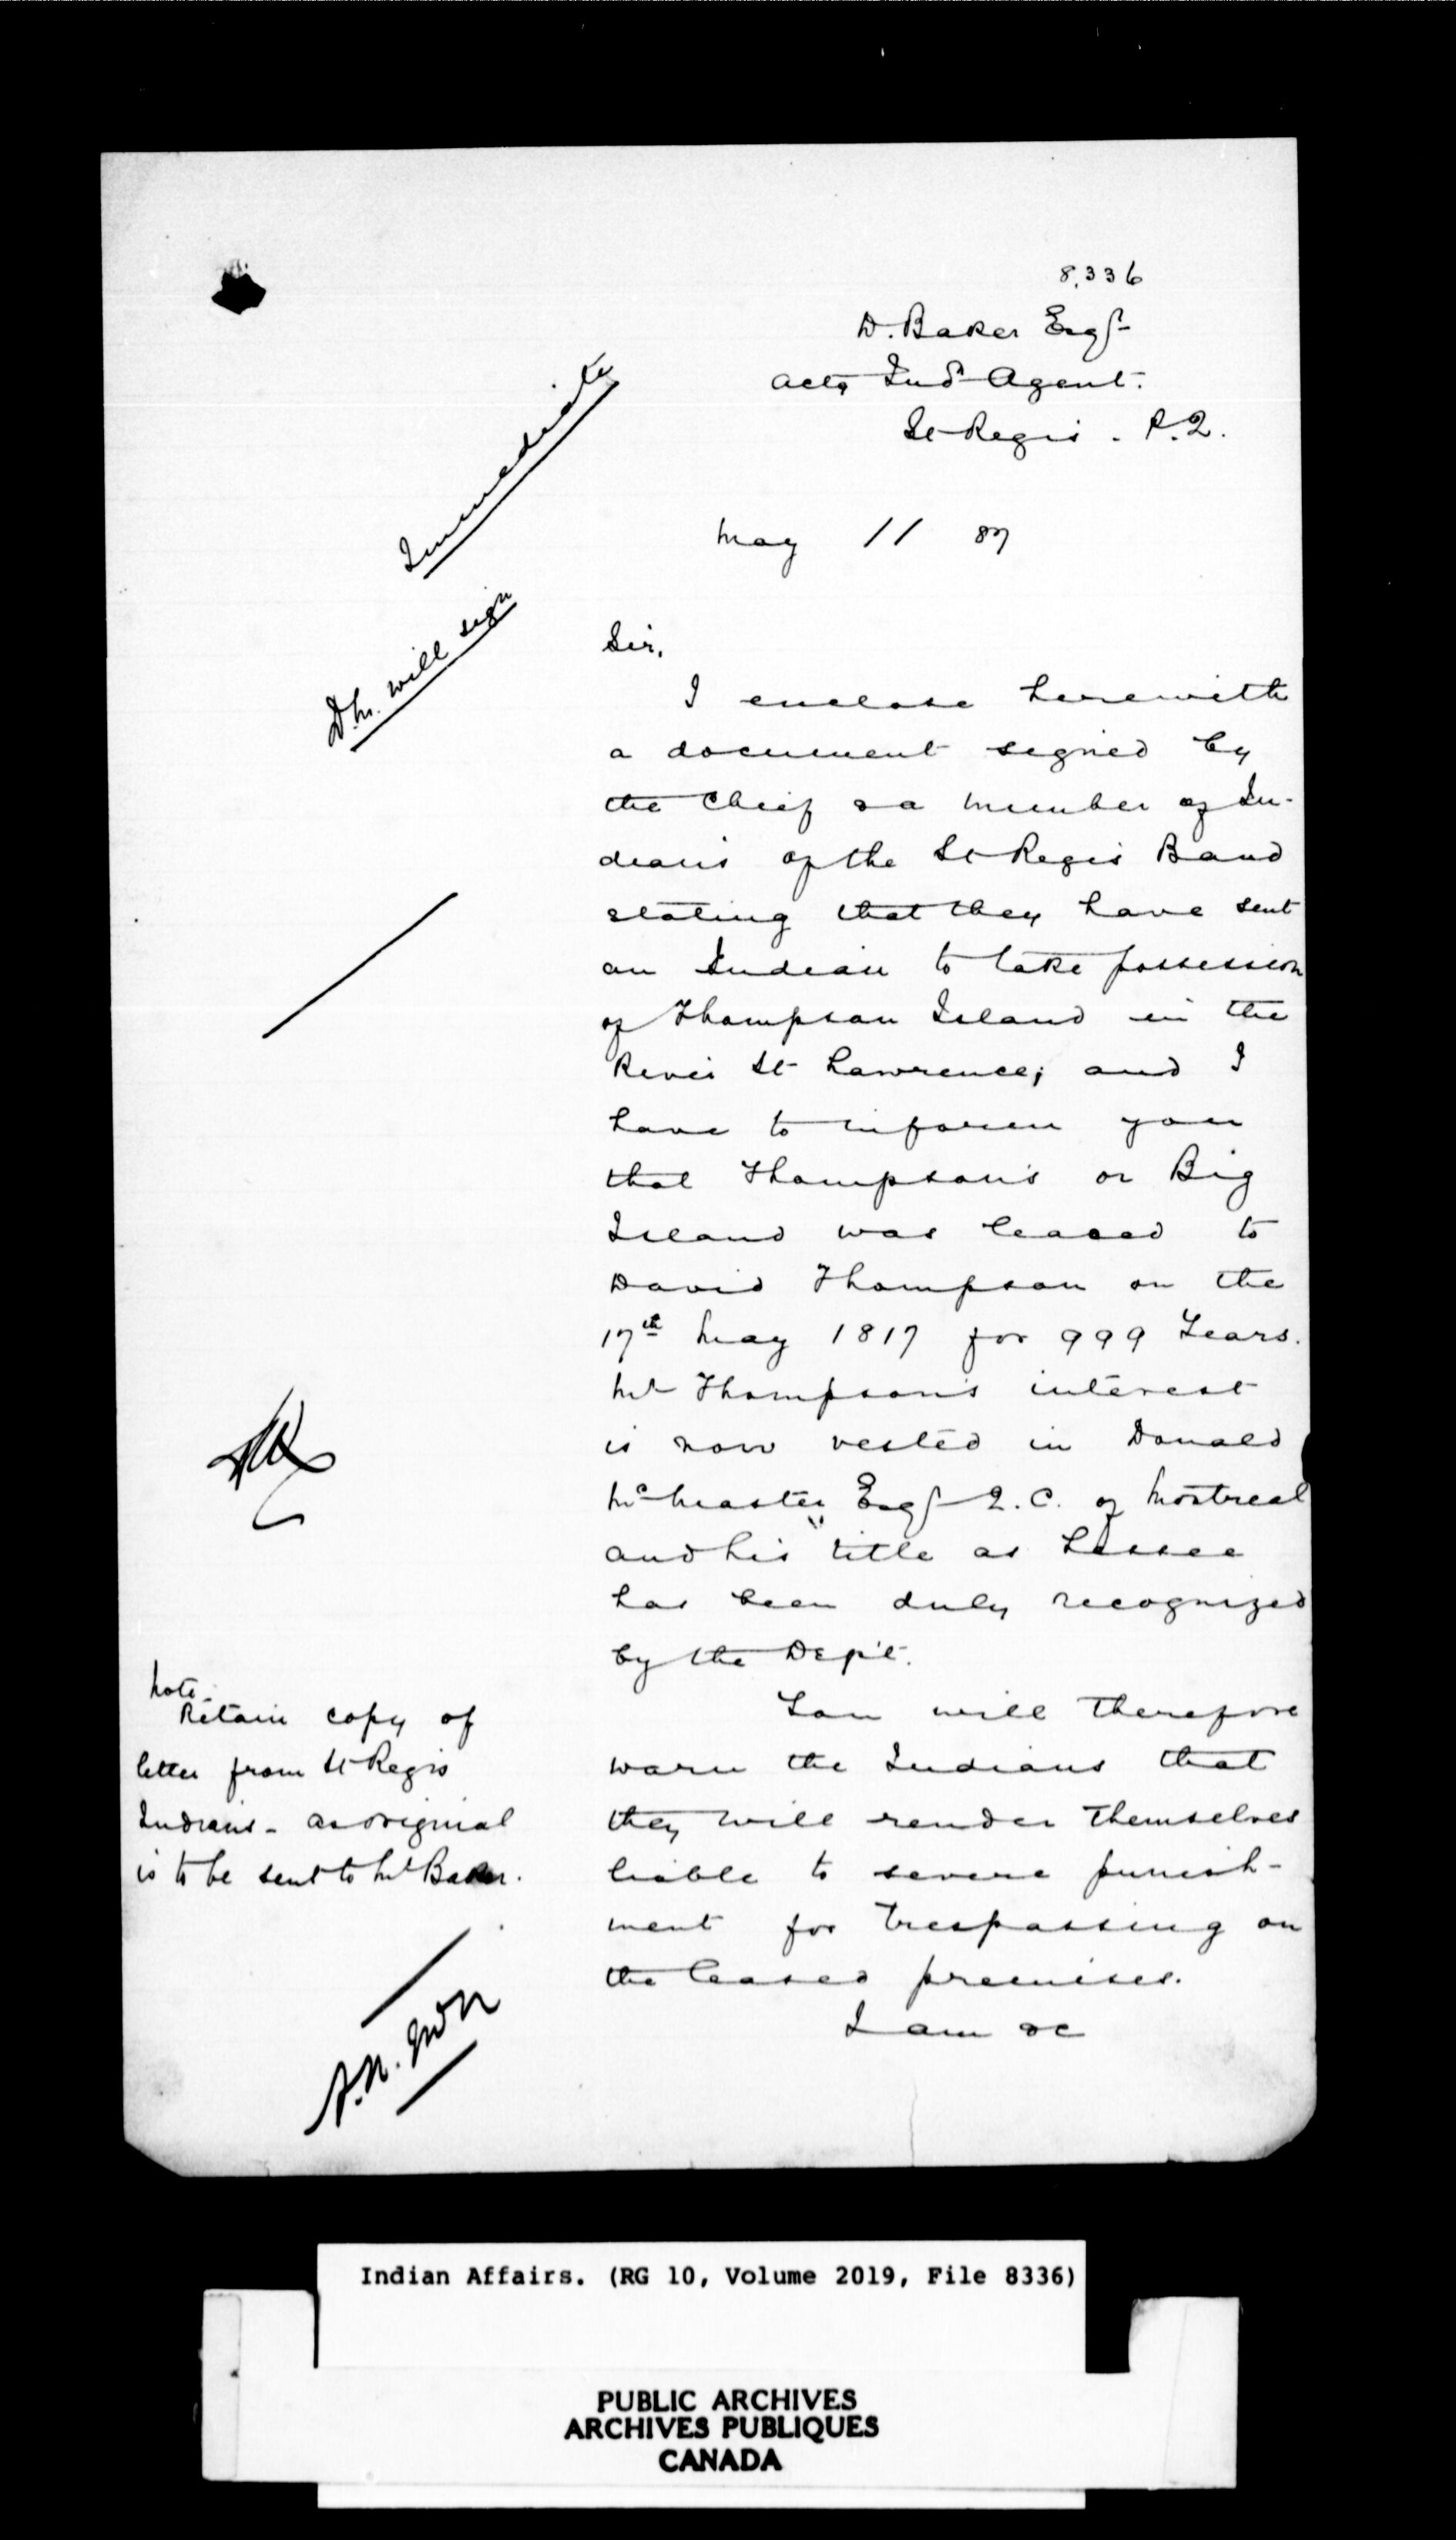 8,336
D. Baker Esqr
Actg Ind Agent.
St Regis. P.Q.
Immediate
May 11 87
D.M. will sign
Sir,
I enclose herewith
a document signed by
the Chief & a number of In-
dians of the St Regis Band
stating that they have sent
an Indian to take possession
of Thompson Island in the
River St Lawrence; and I
have to inform you
that Thompson's or Big
Island was leased to
David Thompson on the
17th May 1817 for 999 Years.
Mr Thompson's interest
is now vested in Donald
McMaster Esqr Q.C. of Montreal
and his title as Lessee
has been duly recognized
by the Dep't.
You will therefore
warn the Indians that
they will render themselves
liable to severe punish-
ment for trespassing on
the leased premises.
I am &c
Note.
Retain copy of
letter from St Regis
Indians - as original
is to be sent to Mr Baker.
Indian Affairs. (RG 10, Volume 2019, File 8336)
PUBLIC ARCHIVES
ARCHIVES PUBLIQUES
CANADA